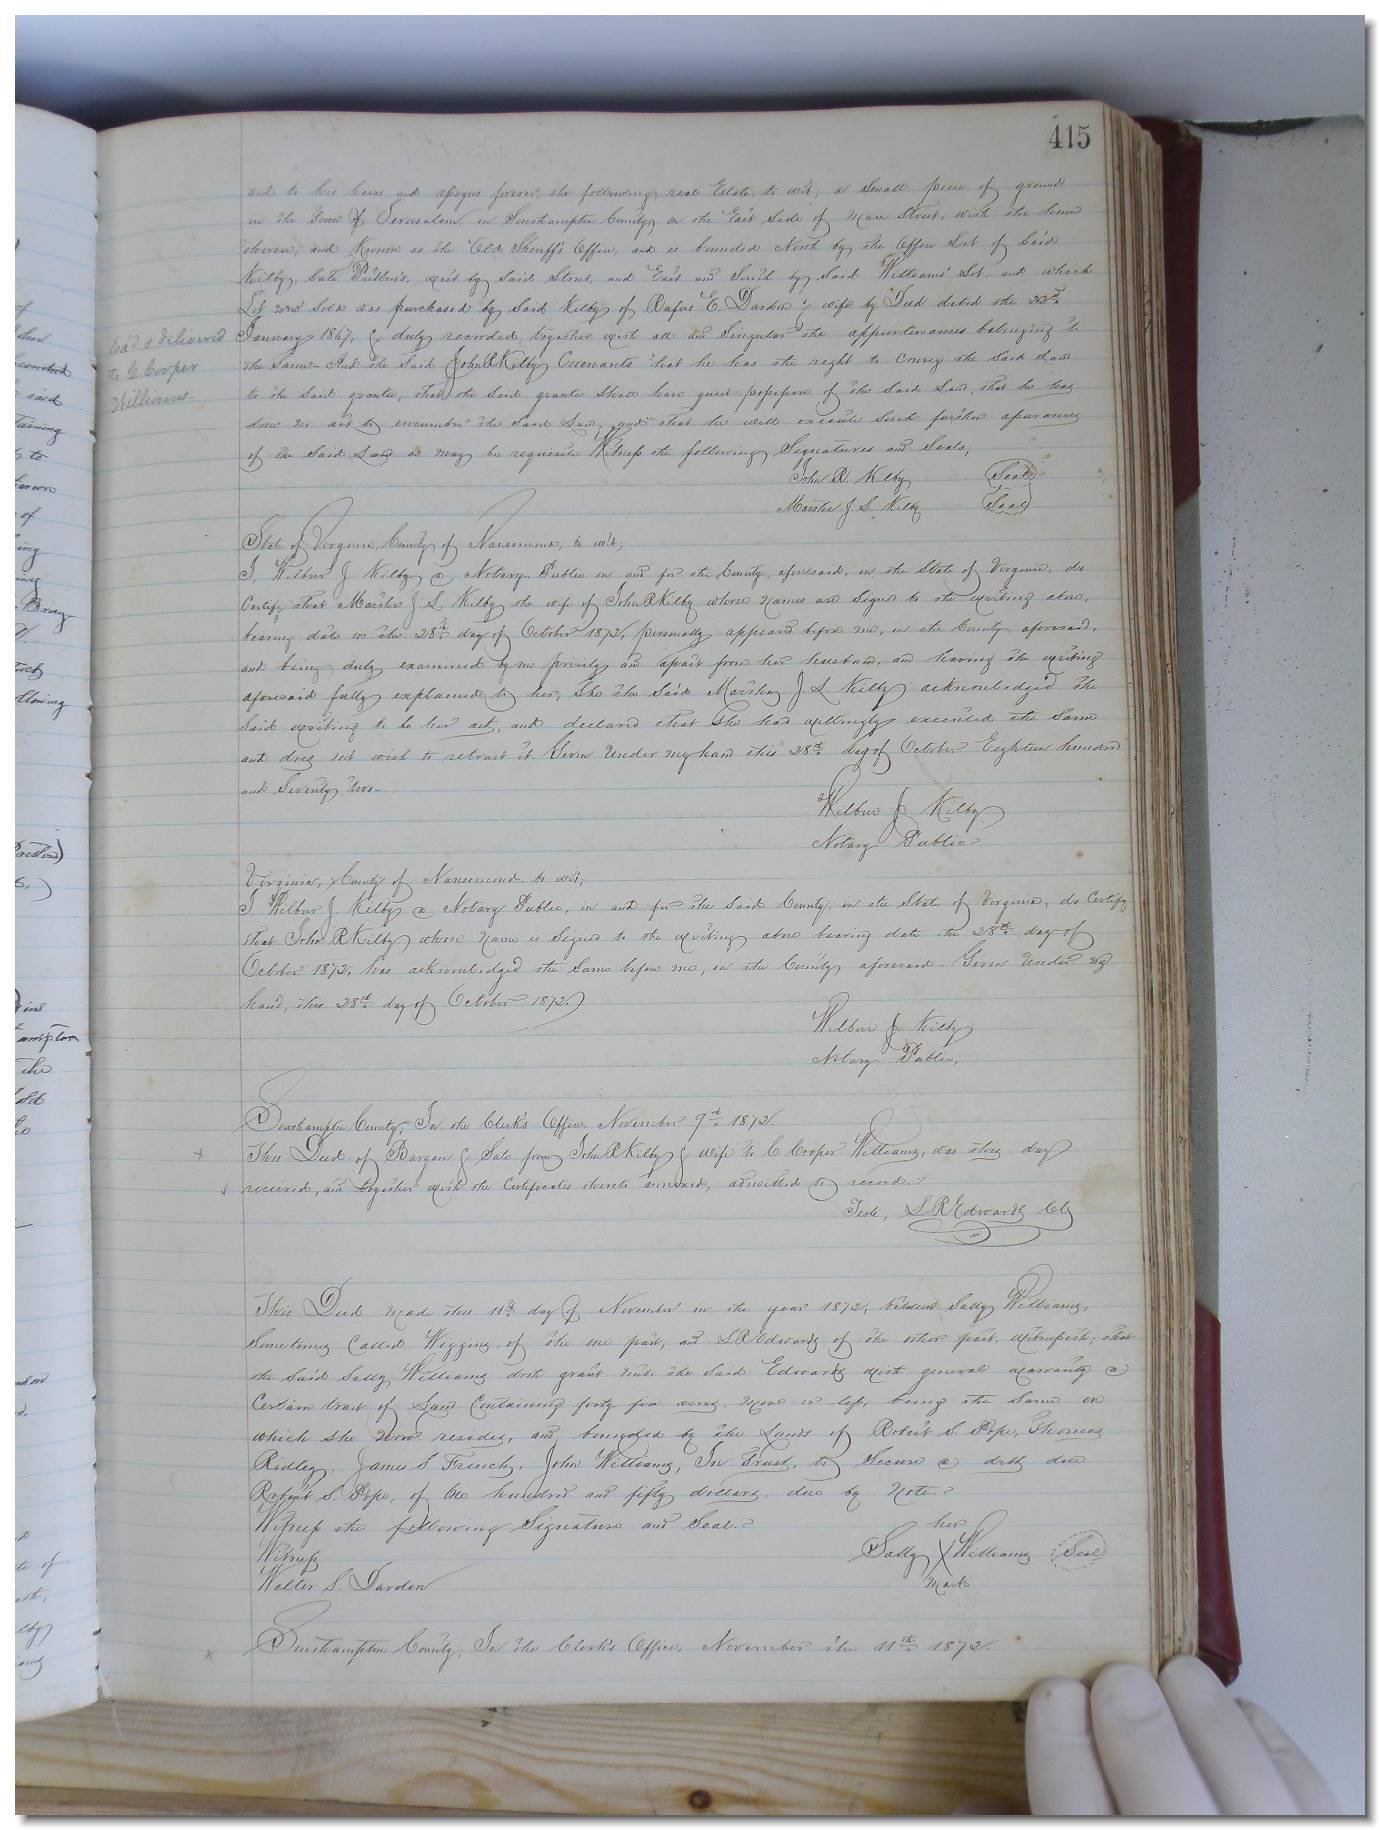 415
and to his heirs and assigns forever, the following real Estate, to wit; a Small piece of ground
in the Town of Jerusalem in Southampton County, on the East Side of Main Street, with the house
thereon, and Known as the "Old Sheriff's Office, and is bounded North by the Office Lot of Said
Kilby, late Pretlow's, West by Said Street, and East and South by Said Williams' Lot, and which
Lot now Sold was purchased by Said Kilby of Rufus E. Darden & wife by Deed dated the 22nd
January 1867, & duly recorded, together with all and Singular the appurtenances belonging to
the Same - And the Said John R Kilby Covenants that he has the right to Convey the Said Land
to the Said grantee, that the Said grantee Shall have quiet possession of the Said Land, that he has
done no act to encumber the Said Land, and that he will execute Such further assurances
of the Said Land as may be requisite Witness the following Signatures and Seals,
Exd & delivered
to C Cooper
Williams -
John R. Kilby (Seal)
Martha J S. Kilby (Seal)
State of Virginia, County of Nansemond, to wit;
I, Wilbur J Kilby a Notary Public in and for the County aforesaid, in the State of Virginia, do
Certify that Martha J S. Kilby the wife of John R Kilby whose Names are Signed to the writing above,
bearing date on the 28th day of October 1872, personally appeared before me, in the County aforesaid,
and being duly examined by me privily and apart from her husband, and having the writing
aforesaid fully explained to her, She the Said Martha J S. Kilby acknowledged the
Said writing to be her act, and declared that She had willingly executed the Same
and does not wish to retract it. Given Under my hand this 28th day of October Eighteen hundred
and Seventy two -
Wilbur J Kilby
Notary Public
Virginia, County of Nansemond to wit;
I Wilbur J. Kilby a Notary Public, in and for the Said County, in the State of Virginia, do Certify
that John R Kilby whose Name is Signed to the writing above bearing date the 28th day of
October 1872, has acknowledged the Same before me, in the County aforesaid - Given Under my
hand, this 28th day of October 1872.
Wilbur J Kilby
Notary Public,
Southampton County, In the Clerk's Office, November 9th 1872.
This Deed of Bargain & Sale from John R Kilby & wife to C Cooper Williams, was this day
received, and together with the Certificates thereto annexed, admitted to record.
Teste, L R Edwards Clk
This Deed made this 11th day of November in the year 1872, between Sally Williams,
Sometimes Called Wiggins, of the one part, and L R Edwards of the other part, Witnesseth; that
the Said Sally Williams doth grant unto the Said Edwards with general warranty a
Certain tract of Land Containing forty five acres, more or less, being the Same on
which She now resides, and bounded by the Lands of Robert S. Pope, Thomas
Ridley, James S French, John Williams, In Trust, to Secure a debt due
Robert S. Pope, of One hundred and fifty dollars, due by Note.
Witness the following Signature and Seal.
her
Witness
Sally X Williams (Seal)
Walter S. Darden
mark
Southampton County, In the Clerk's Office, November the 11th 1872.